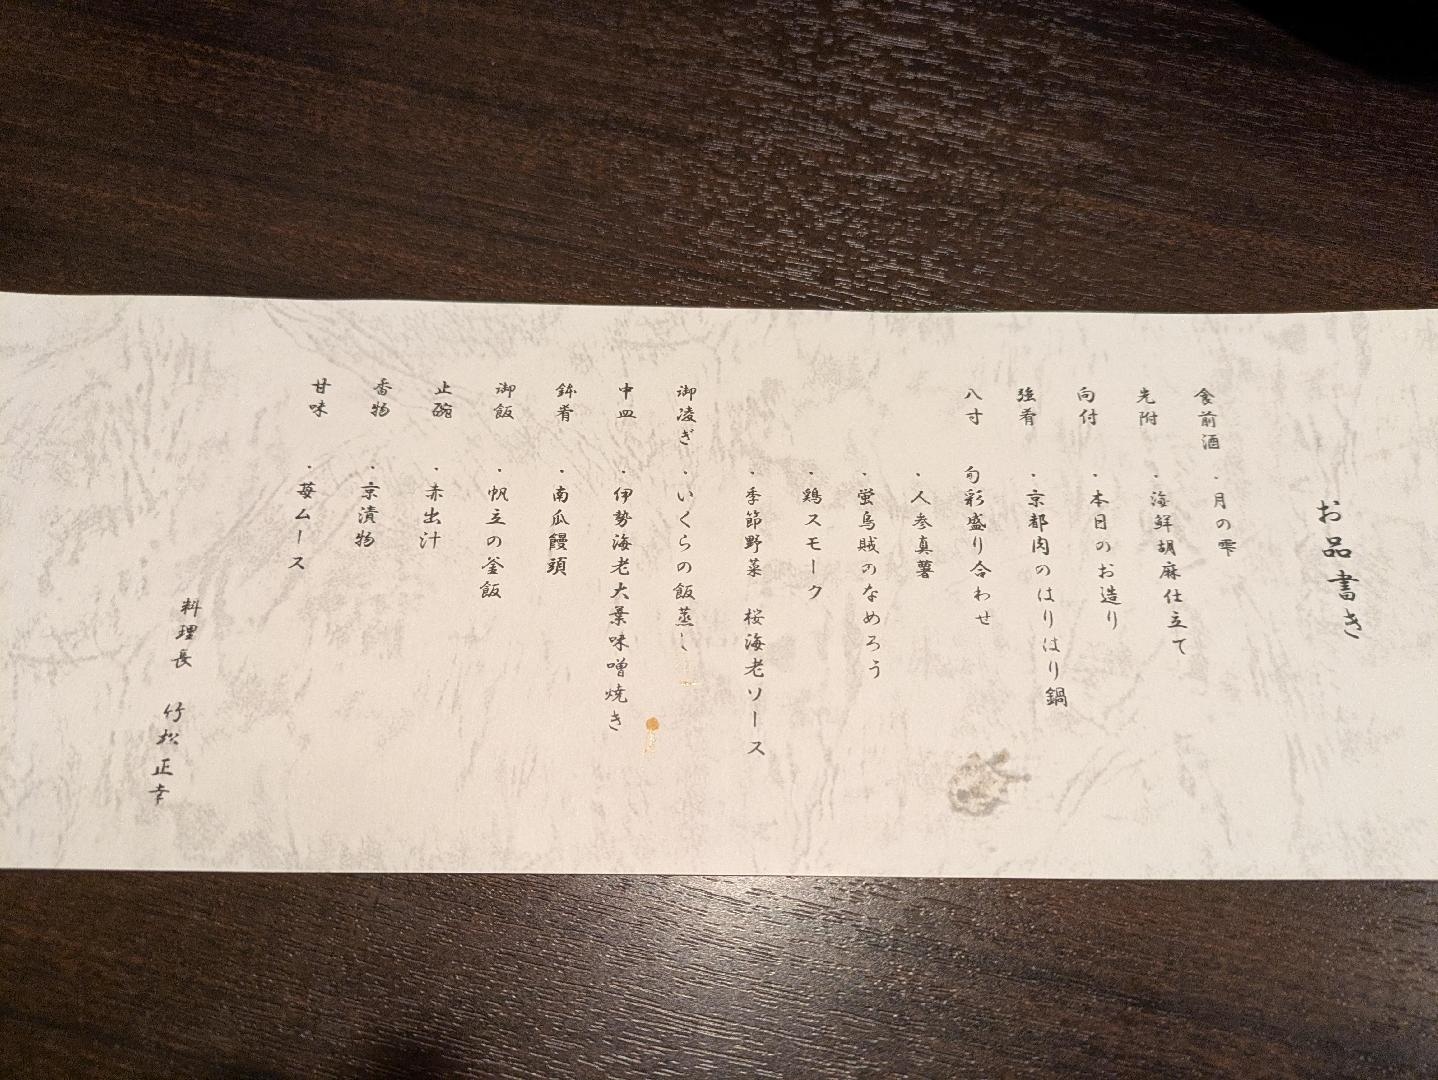 お品書き
食前酒 ・月の雫
先附 ・海鮮胡麻仕立て
向付 ・本日のお造り
強肴 ・京都肉のはりはり鍋
八寸 旬彩盛り合わせ
・人参真薯
・蛍烏賊のなめろう
・鶏スモーク
・季節野菜 桜海老ソース
御凌ぎ ・いくらの飯蒸し
中皿 ・伊勢海老大葉味噌焼き
鉢肴 ・南瓜饅頭
御飯 ・帆立の釜飯
止碗 ・赤出汁
香物 ・京漬物
甘味 ・苺ムース
料理長 竹松正幸